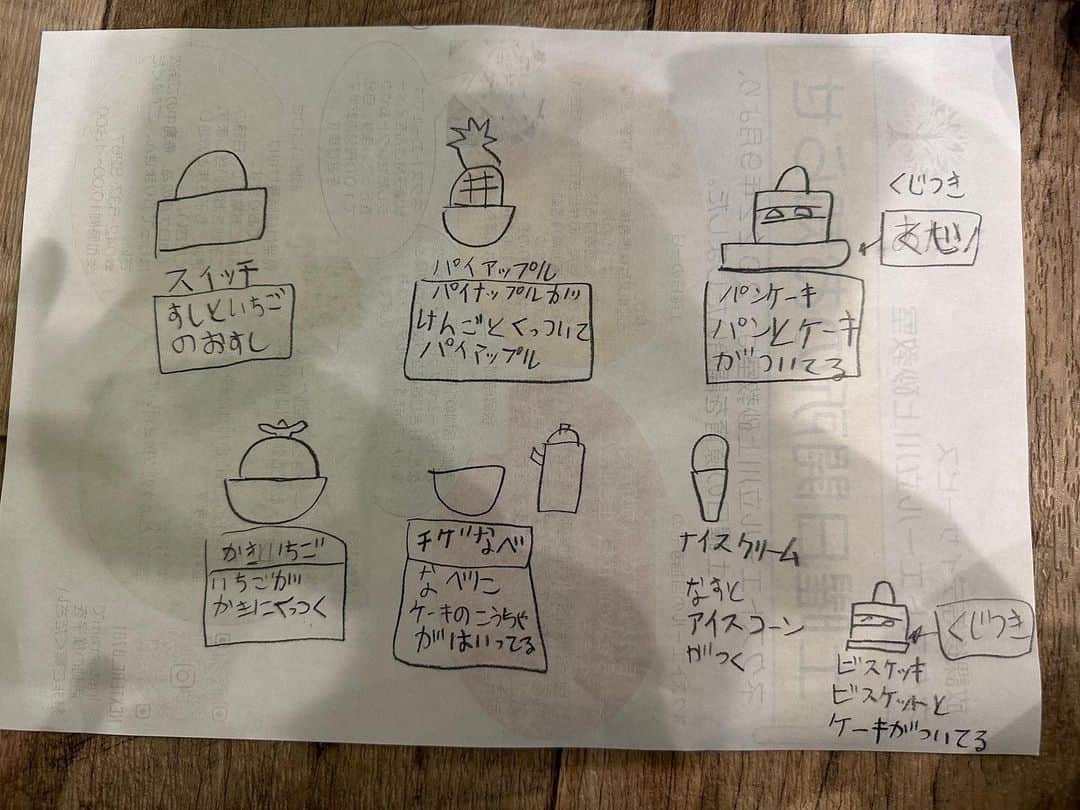 スイッチ
すしといちご
のおすし
パイアップル
パイナップルがリ
けんごとくっついて
パイアップル
くじつき
パンケーキ
パンとケーキ
がついてる
かきいちご
いちごが
かきにくっつく
チゲなべ
なべに
ケーキのこうちゃ
がはいってる
ナイスクリーム
なすと
アイスコーン
がつく
くじつき
ビスケッキ
ビスケットと
ケーキがついてる